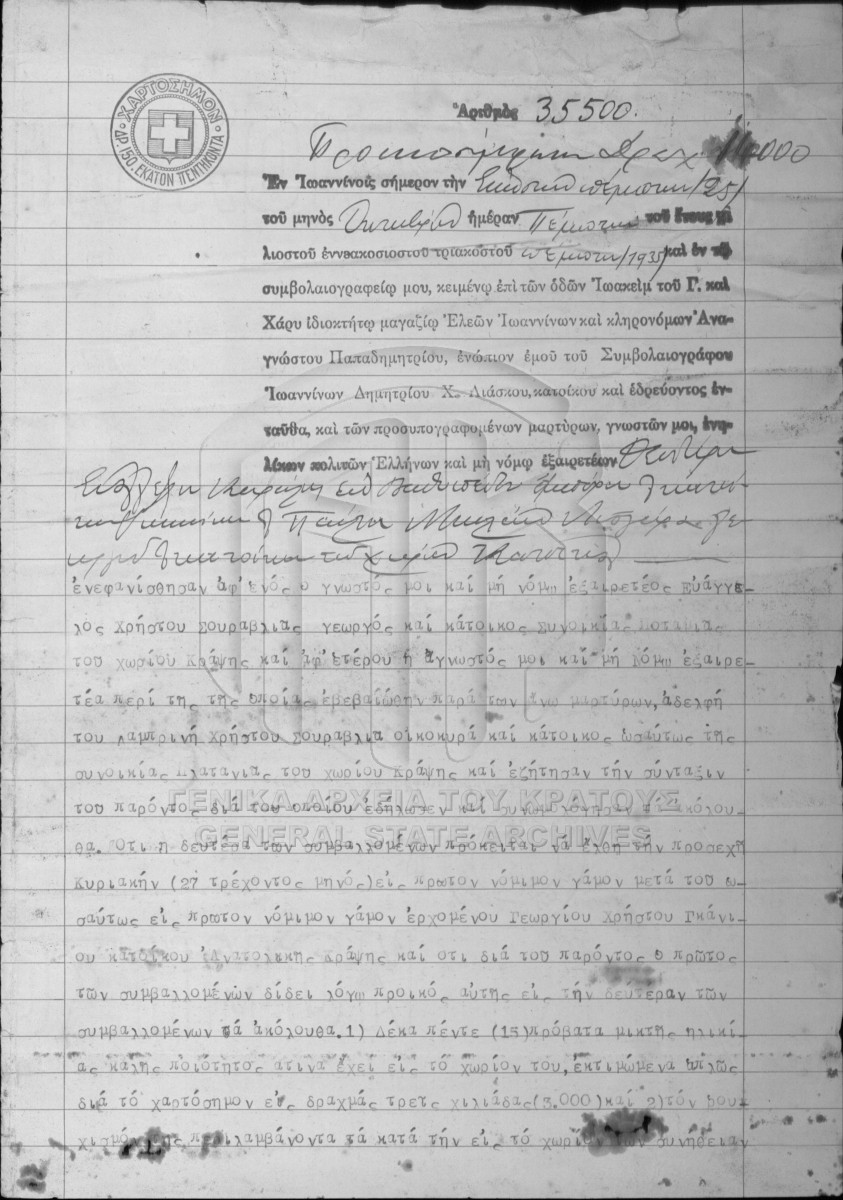 ΧΑΡΤΟΣΗΜΟΝ
ΔΡ. 150. ΕΚΑΤΟΝ ΠΕΝΤΗΚΟΝΤΑ
Ἀριθμὸς 35500.
Προικοσύμφωνον Δραχ 000
Ἐν Ἰωαννίνοις σήμερον τὴν Εἰκοστὴν πέμπτην /25/
τοῦ μηνὸς Ὀκτωβρίου ἡμέραν Πέμπτην τοῦ ἔτους χι
λιοστοῦ ἐννεακοσιοστοῦ τριακοστοῦ πέμπτου /1935/ καὶ ἐν τῷ
συμβολαιογραφείῳ μου, κειμένῳ ἐπὶ τῶν ὁδῶν Ἰωακεὶμ τοῦ Γ. καὶ
Χάρυ ἰδιοκτήτῳ μαγαζίῳ Ἐλεῶν Ἰωαννίνων καὶ κληρονόμων Ἀνα-
γνώστου Παπαδημητρίου, ἐνώπιον ἐμοῦ τοῦ Συμβολαιογράφου
Ἰωαννίνων Δημητρίου Χ. Λιάσκου, κατοίκου καὶ ἑδρεύοντος ἐν-
ταῦθα, καὶ τῶν προσυπογραφομένων μαρτύρων, γνωστῶν μοι, ἐνη-
λίκων πολιτῶν Ἑλλήνων καὶ μὴ νόμῳ ἐξαιρετέων
Παύλου
τοῦ χωρίου
ἐνεφανίσθησαν ἀφ' ἑνός ο γνωστός μοι καί μή νόμῳ ἐξαιρετέος Εὐάγγε-
λος Χρήστου Σουραβλιας γεωργός καί κάτοικος Συνοικίας Ποταμιας
του χωρίου Κράψης καί ἀφ'ετέρου ἡ ἀγνωστός μοι καί μή νόμῳ ἐξαιρε-
τέα περί της της οποίας ἐβεβαιώθην παρά των ἄνω μαρτύρων, ἀδελφή
του Λαμπρινή Χρήστου Σουραβλια οἰκοκυρά καί κάτοικος ὡσαύτως της
συνοικίας Πλατανιας του χωρίου Κράψης καί ἐζήτησαν τήν σύνταξιν
του παρόντος διά του οποίου ἐδήλωσεν καί συνωμολόγησαν τά ἀκόλου-
θα. Ὅτι η δευτέρα των συμβαλλομένων πρόκειται νά ἔλθη τήν προσεχῆ
Κυριακήν (27 τρέχοντος μηνός) εἰς πρωτον νόμιμον γάμον μετά του ω-
σαύτως εἰς πρωτον νόμιμον γάμον ἐρχομένου Γεωργίου Χρήστου Γκάνι-
ου κατοίκου Ἀνατολικῆς Κράψης καί οτι διά του παρόντος ο πρῶτος
τῶν συμβαλλομένων δίδει λόγῳ προικός αὐτης εἰς τήν δεύτεραν τῶν
συμβαλλομένων τά ἀκόλουθα. 1) Δέκα πέντε (15) πρόβατα μικτῆς ηλικί-
ας καλης ποιότητος ατινα ἔχει εἰς τό χωρίον του, ἐκτιμώμενα ἁπλῶς
διά τό χαρτόσημον εἰς δραχμάς τρεις χιλιάδας (3.000) καί 2) τόν ρου-
χισμόν της περιλαμβάνοντα τά κατά τήν εἰς τό χωρίον των συνήθειαν
ΓΕΝΙΚΑ ΑΡΧΕΙΑ ΤΟΥ ΚΡΑΤΟΥΣ
GENERAL STATE ARCHIVES